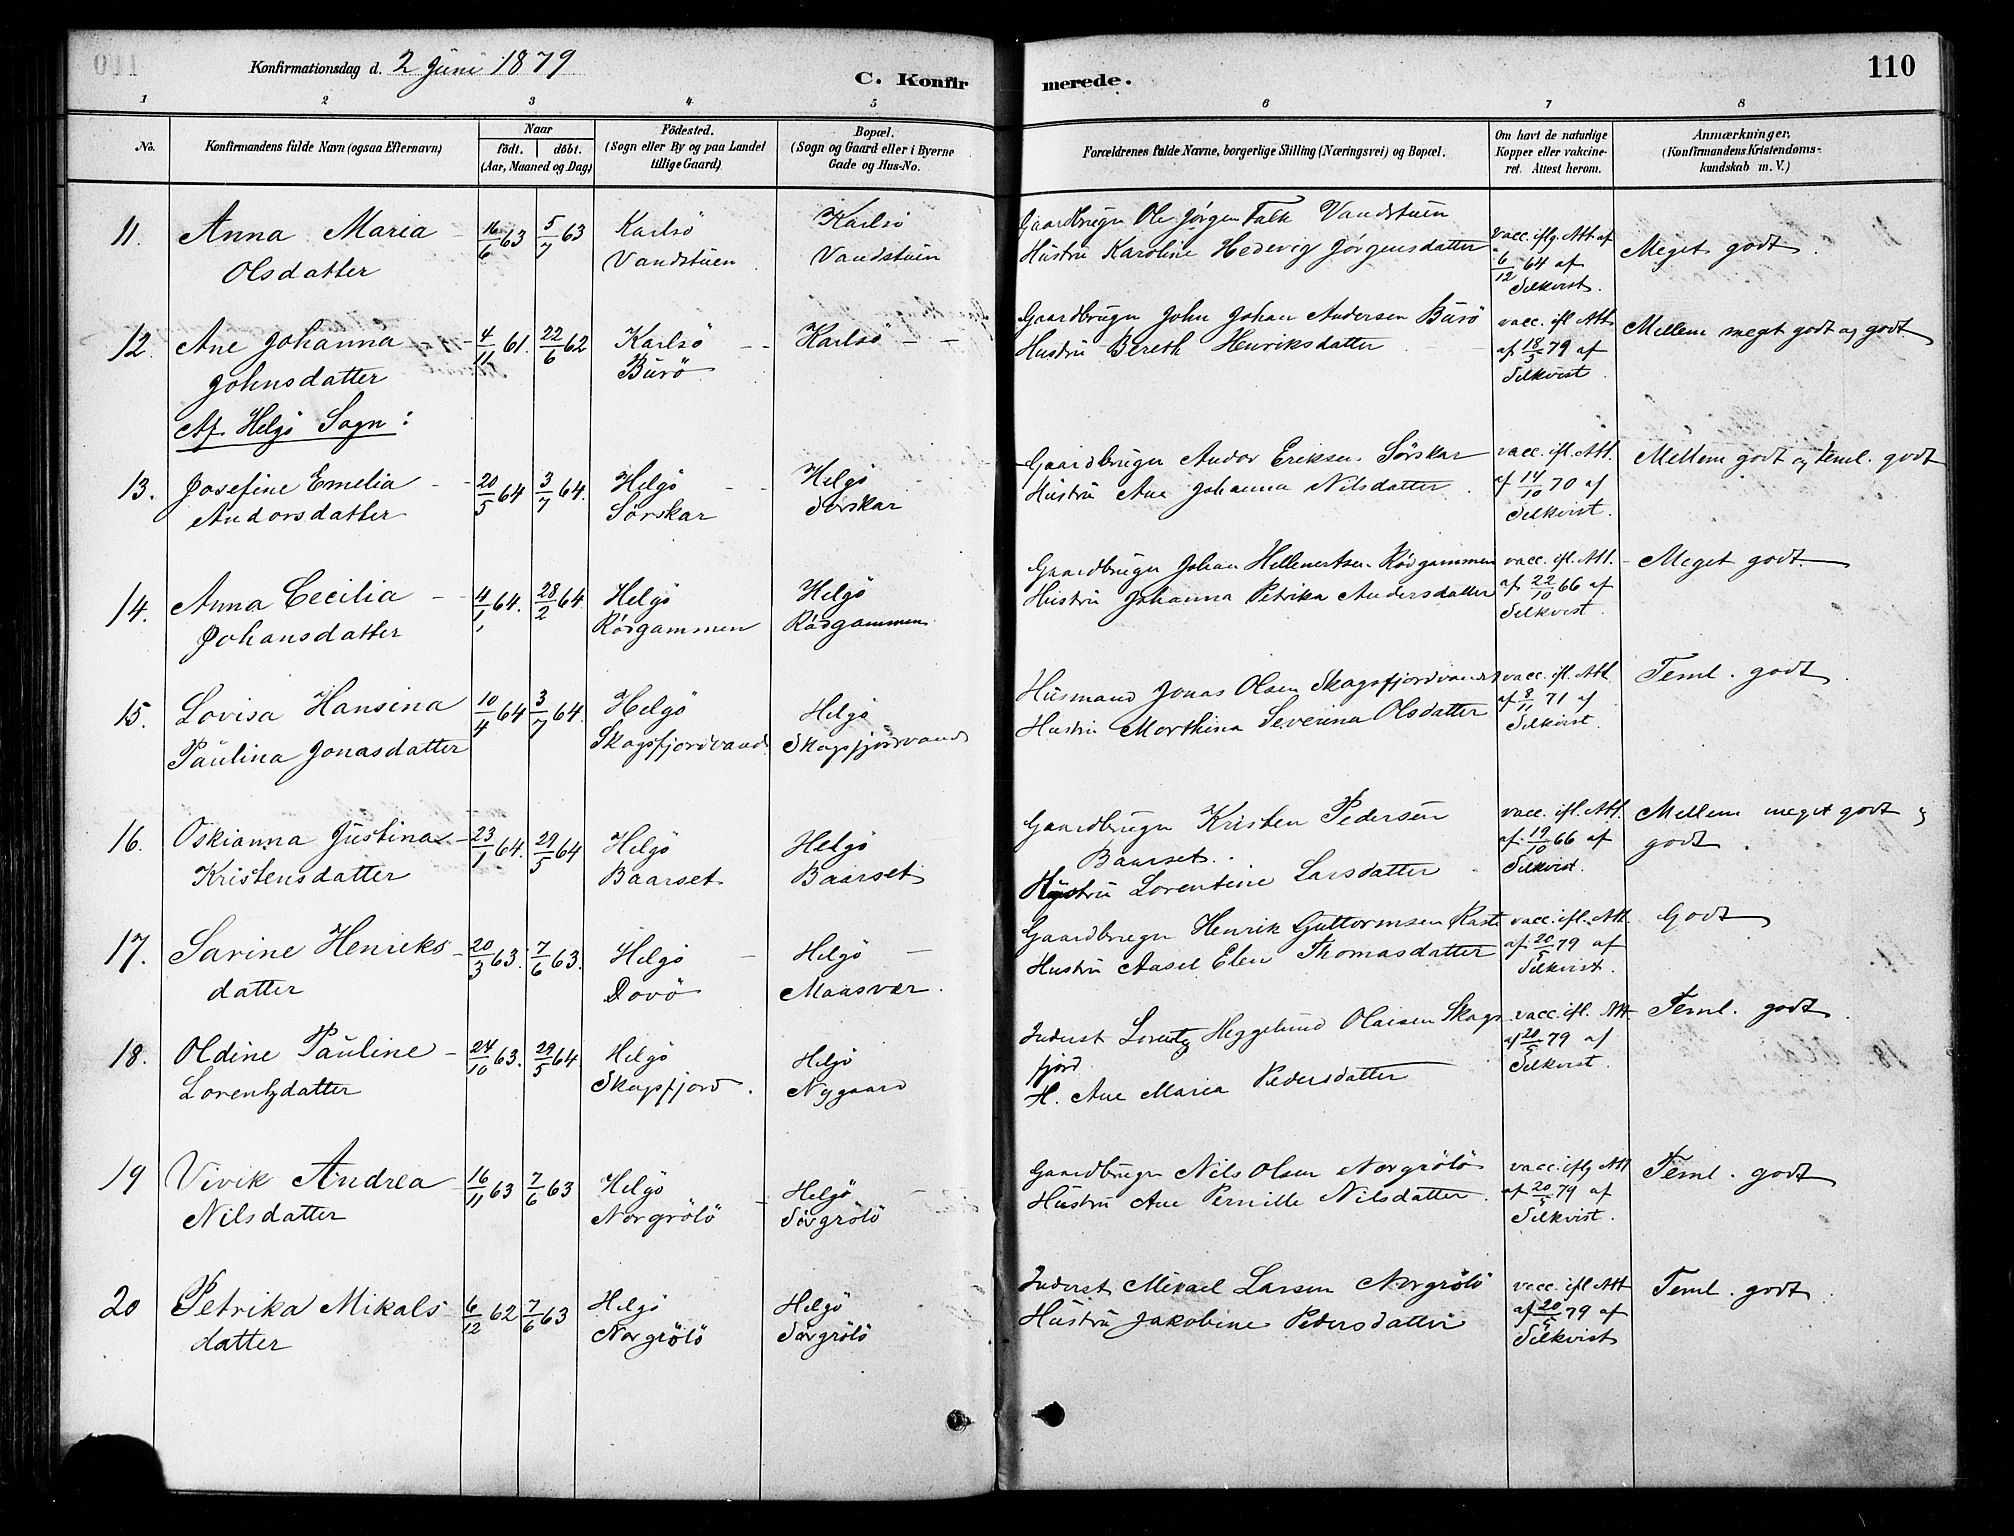 Konfirmationsdag d. 2 Juni 1879
C. Konfir merede.
110
1 2 3 4 5 6 7 8
No.
Konfirmandens fulde Navn (ogsaa Efternavn)
Naar
födt. döbt.
(Aar, Maaned og Dag)
Födested.
(Sogn eller By og paa Landet
tillige Gaard)
Bopæl.
(Sogn og Gaard eller i Byerne
Gade og Hus-No.
Forældrenes fulde Navne, borgerlige Stilling (Næringsvei) og Bopæl.
Om havt de naturlige
Kopper eller vakcine-
ret. Attest herom.
Anmærkninger.
(Konfirmandens Kristendoms-
kundskab m. V.)
11. Anna Maria 16/6 63 5/7 63 Karlsö Karlsö Gaardbruger Ole Jörgen Falk Vandstuen vacc. iflg. Att. af Meget godt.
Olsdatter Vandstuen Vandstuen Hustru Karoline Hedevig Jörgensdatter 6/12 64 af
Silkvist.
12. Ane Johanna 4/11 61. 22/6 62 Karlsö Karlsö Gaardbruger John Johan Andersen Burö vacc. ifl. Att. Mellem meget godt og godt
Johnsdatter Burö Hustru Bereth Henriksdatter af 18/5 79 af
Silkvist
Af Helgö Sogn:
13. Josefine Emelia 20/5 64 3/7 64. Helgö Helgö Gaardbruger Andor Eriksen Sörskar vacc. ifl. Att. Mellem godt og teml. godt
Andorsdatter Sörskar Sörskar Hustru Ane Johanna Nilsdatter af 14/10 70 af
Silkvist.
14. Anna Cecilia 4/1 64. 28/2 64. Helgö Helgö Gaardbruger Johan Hellenertsen Rödgammen vacc. ifl. Att. Meget godt
Johansdatter Rödgammen Rödgammen Hustru Johanna Petrika Andersdatter af 22/10 66 af
Silkvist.
15. Lovisa Hansina 10/4 64 3/7 64. Helgö Helgö Husmand Jonas Olsen Skogsfjordvand vacc. ifl. Att. Teml. godt.
Paulina Jonasdatter Skogsfjordvand Skogsfjordvand Hustru Morthina Severina Olsdatter af 8/11 71 af
Silkvist.
16. Oskianna Justina 23/1 64. 29/5 64 Helgö Helgö Gaardbruger Kristen Pedersen vacc. ifl. Att. Mellem meget godt og
Kristensdatter Baarset Baarset Baarset. af 19/10 66 af godt.
Hustru Lorentine Larsdatter Silkvist.
17. Sarine Henriks 20/3 63. 7/6 63. Helgö Helgö Gaardbruger Henrik Guttormsen Rast vacc. ifl. Att. Godt
datter Dovö Maasvær. Hustru Aasel Elen Thomasdatter af 20/5 79 af
Silkvist.
18. Oldine Pauline 24/10 63. 29/5 64. Helgö Helgö Inderst Lorentz Heggelund Olaisen Skogs vacc. ifl. Att Teml. godt.
Lorentzdatter Skogsfjord. Nygaard fjord. af 20/5 79 af
H. Ane Maria Pedersdatter Silkvist.
19 Vivik Andrea 16/11 63 7/6 63 Helgö Helgö Gaardbruger Nils Olsen Norgrölö vacc. iflg Att Teml. godt
Nilsdatter Norgrölö Sörgrölö Hustru Ane Pernille Nilsdatter. af 20/5 79 af
Silkvist.
20 Petrika Mikals 6/12 62 7/6 63 Helgö Helgö Inderst Mikael Larsen Norgrölö vacc. ifl Att Teml. godt.
datter Norgrölö Sörgrölö Hustru Jakobine Pedersdatter af 20/5 79 af
Silkvist